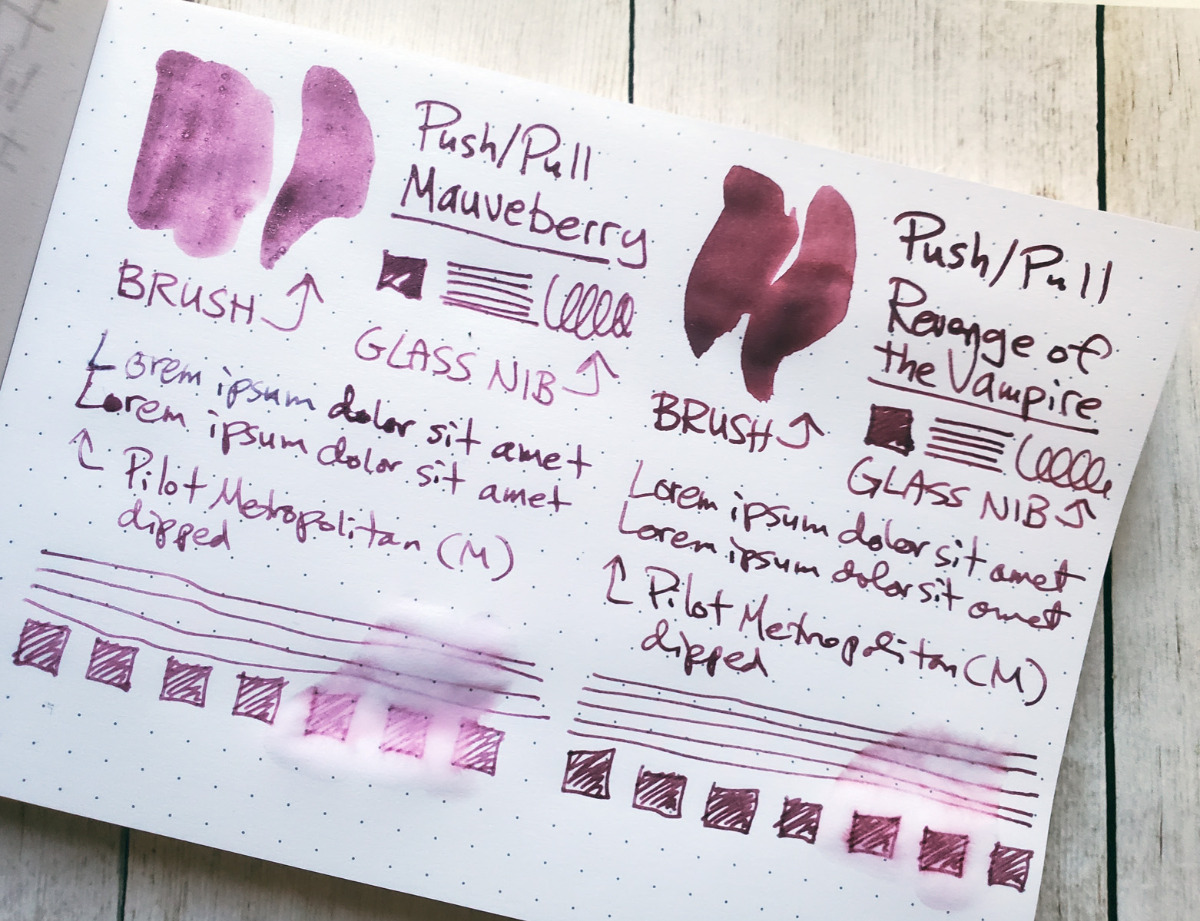 Push/Pull
Mauveberry
BRUSH
GLASS NIB
Lorem ipsum dolor sit amet
Lorem ipsum dolor sit amet
Pilot Metropolitan (M)
dipped
Push/Pull
Revenge of
the Vampire
BRUSH
GLASS NIB
Lorem ipsum dolor sit amet
Lorem ipsum dolor sit amet
Pilot Metropolitan (M)
dipped